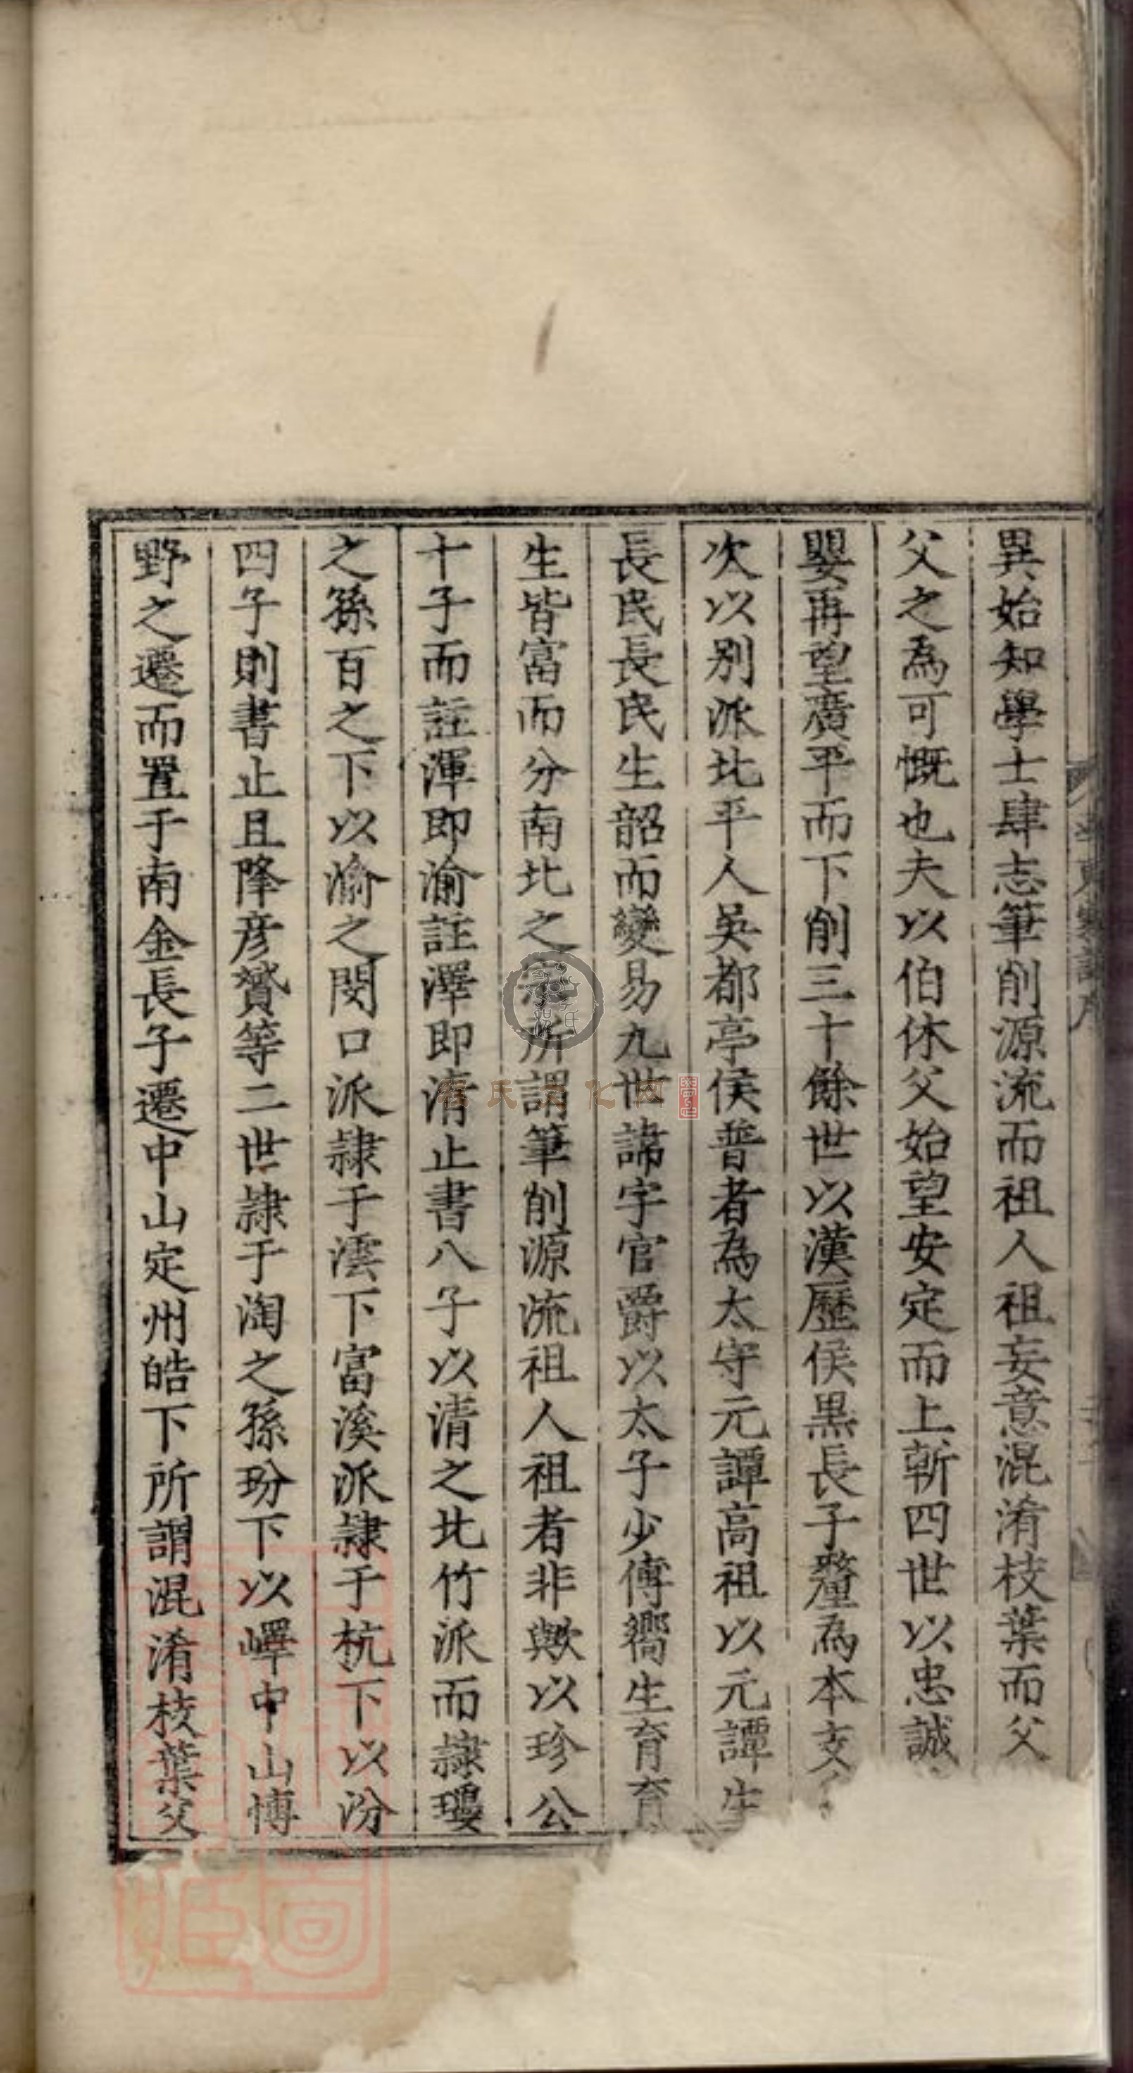 異始知學士肆志筆削源流而祖人祖妄意混淆枝葉而父
父之為可慨也夫以伯休父始望安定而上斬四世以忠誠
嬰再望廣平而下削三十餘世以漢歷侯黑長子釐為本支
次以別派北平人吳都亭侯普者為太守元譚高祖以元譚生
長民長民生韶而變易九世諱字官爵以太子少傅嚮生育育
生皆富而分南北之宗所謂筆削源流祖人祖者非歟以珍公
十子而註渾即渝註澤即清止書八子以清之北竹派而隷瓔
之孫百之下以渝之閔口派隷于澐下富溪派隷于杭下以汾
四子則書止且降彦贇等二世隷于淘之孫玢下以嶧中山博
野之遷而置于南金長子遷中山定州皓下所謂混淆枝葉父